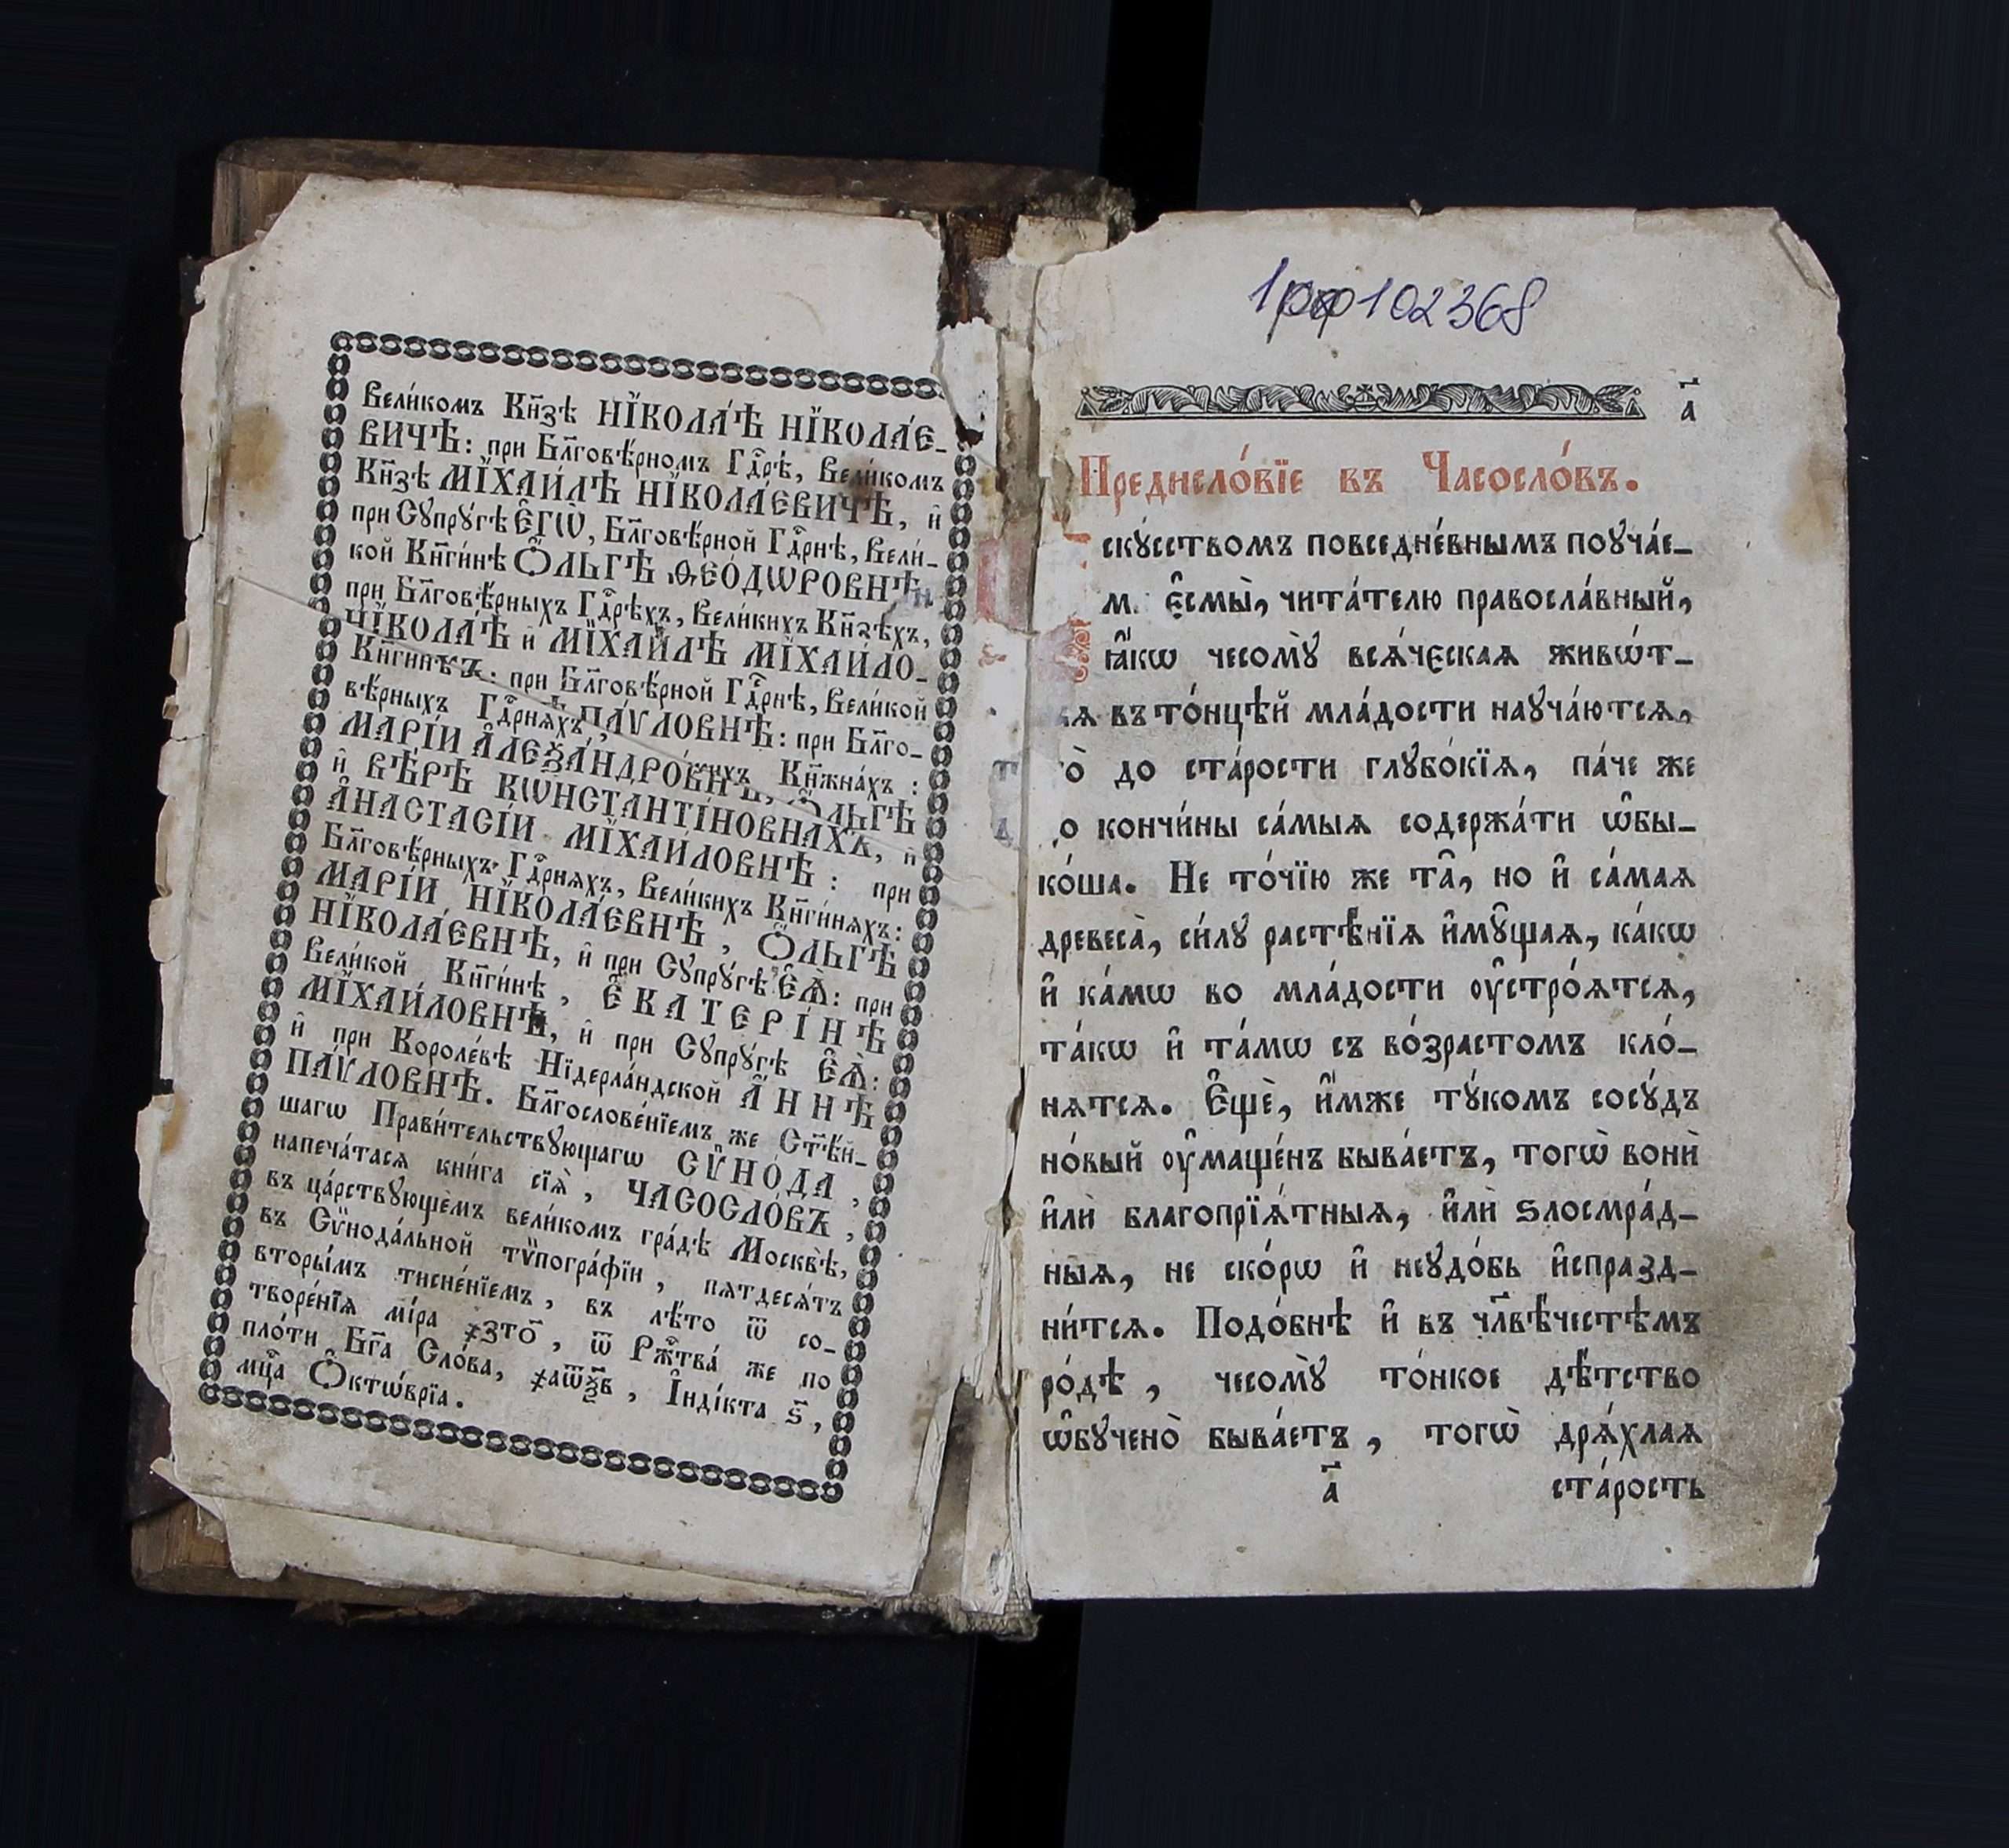 Вели́комъ Кн҃зѣ НЇКОЛА́Ѣ НЇКОЛА́Є-
ВИЧѢ: при Бл҃говѣ́рномъ Гдⷭ҇рѣ, Вели́комъ
Кн҃зѣ МЇХАИ́ЛѢ НЇКОЛА́ЄВИЧѢ, и҆
при Сꙋпрꙋ́гѣ Є҆ГѠ̀, Бл҃говѣ́рной Гдⷭ҇рнѣ, Вели́-
кой Кн҃ги́нѣ Ѻ҆́ЛЬГѢ ѲЕО́ДѠРОВНѢ
при Бл҃говѣ́рныхъ Гдⷭ҇рѣхъ, Вели́кихъ Кн҃зѣхъ,
НЇКОЛА́Ѣ и҆ МЇХАИ́ЛѢ МЇХАИ́ЛО-
при Бл҃говѣ́рной Гдⷭ҇рнѣ, Вели́кой
ПА́ѴЛОВНѢ: при Бл҃го-
вѣ́рныхъ Гдⷭ҇рнѧхъ, Кн҃жна́хъ :
МАРІ́И А҆ЛЕѮА́НДРОВНѢ, Ѻ҆́ЛЬГѢ
и҆ ВѢ́РѢ КѠНСТАНТІ́НОВНАХЪ, и҆
А҆НАСТАСІ́И МЇХАИ́ЛОВНѢ : при
Бл҃говѣ́рныхъ Гдⷭ҇рнѧхъ, Вели́кихъ Кн҃ги́нѧхъ:
МАРІ́И НЇКОЛА́ЕВНѢ , Ѻ҆́ЛЬГѢ
НЇКОЛА́ЕВНѢ, и҆ при Сꙋпрꙋ́гѣ Є҆Ѧ̀: при
Вели́кой Кн҃ги́нѣ , Є҆КАТЕРІ́НѢ
МЇХАИ́ЛОВНѢ, и҆ при Сꙋпрꙋ́гѣ Є҆Ѧ̀:
и҆ при Короле́вѣ Нїдерла́ндской А҆́ННѢ
ПА́ѴЛОВНѢ. Бл҃гослове́нїемъ же Ст҃ѣ́й-
шагѡ Прави́тельствꙋющагѡ СѴНО́ДА ,
напеча́тасѧ кни́га сїѧ̀ , ЧАСОСЛО́ВЪ ,
въ ца́рствꙋющемъ вели́комъ гра́дѣ Москвѣ̀,
въ Сѷнода́льной тѷпогра́фїи , пѧтдесѧ́тъ
вторы́мъ тисне́нїемъ , въ лѣ́то ѿ со-
творе́нїѧ мі́ра ҂зто҃ , ѿ Ржⷭ҇тва́ же по
пло́ти Бг҃а Сло́ва, ҂аѿѯ҃в , І҆нді́кта ѕ҃ ,
мцⷭ҇а Ѻ҆ктѡ́врїа .
1рф102368
а҃
Предисло́вїе въ Часосло́въ.
скꙋ́сствомъ повседне́внымъ поꙋча́е-
м. Є҆смы̀, чита́телю правосла́вный,
ꙗ҆́кѡ чесомꙋ̀ всѧ́ческаѧ живѡ́т-
ѧ въ то́нцѣй мла́дости наꙋча́ютсѧ,
то̀ до ста́рости глꙋбо́кїѧ, па́че же
до кончи́ны са́мыѧ содержа́ти ѡ҆бы-
ко́ша. Не то́чїю же та̑, но и҆ са́маѧ
древеса̀, си́лꙋ расте́нїѧ и҆мꙋ̑щаѧ, ка́кѡ
и҆ ка́мѡ во мла́дости ᲂу҆стро́ѧтсѧ,
та́кѡ и҆ та́мѡ съ во́зрастомъ кло́-
нѧтсѧ. Є҆щѐ, и҆́мже тꙋ́комъ сосꙋ́дъ
но́вый ᲂу҆маще́нъ быва́етъ, тогѡ̀ вонѝ
и҆лѝ благопрїѧ́тныѧ, и҆лѝ ѕлосмра́д-
ныѧ, не ско́рѡ и҆ неꙋдо́бь и҆спразд-
ни́тсѧ. Подо́бнѣ и҆ въ чл҃вѣ́честѣмъ
ро́дѣ , чесомꙋ̀ то́нкое дѣ́тство
ѡ҆бꙋчено̀ быва́етъ , тогѡ̀ дрѧ́хлаѧ
а҃ ста́рость